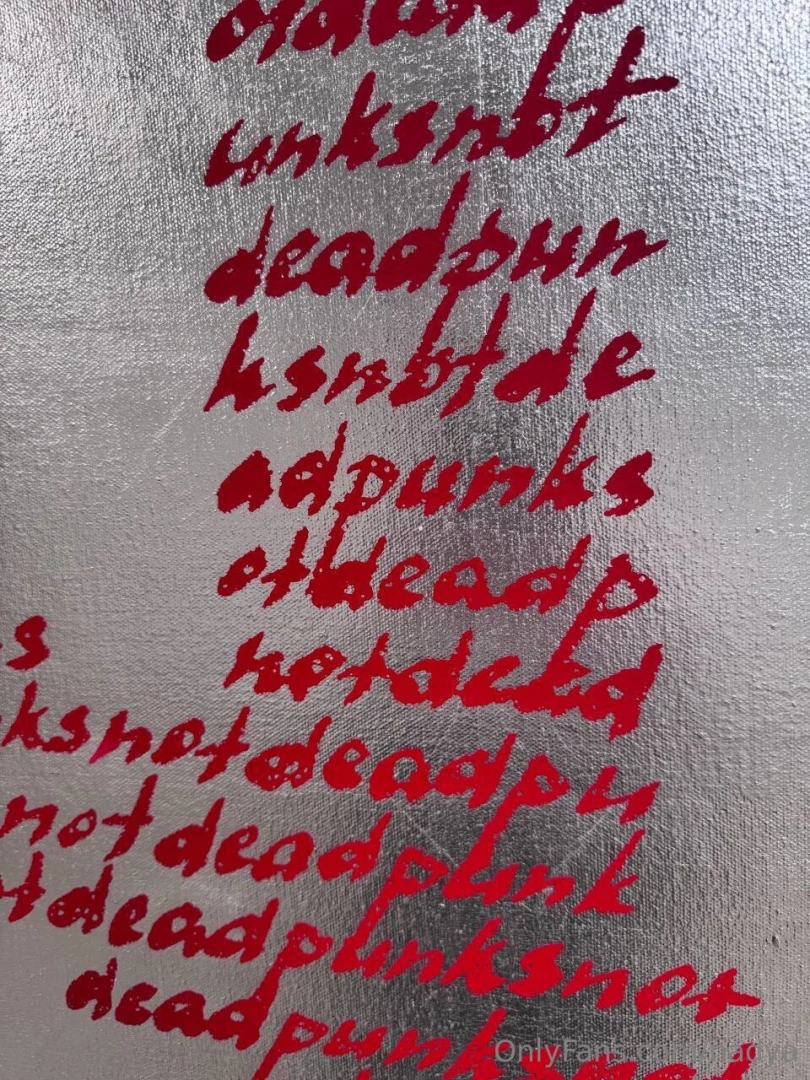 unksnot
deadpun
ksnotde
adpunks
otdeadp
s
notdead
ksnotdeadpu
notdeadpunk
tdeadpunksnot
deadpunksnot